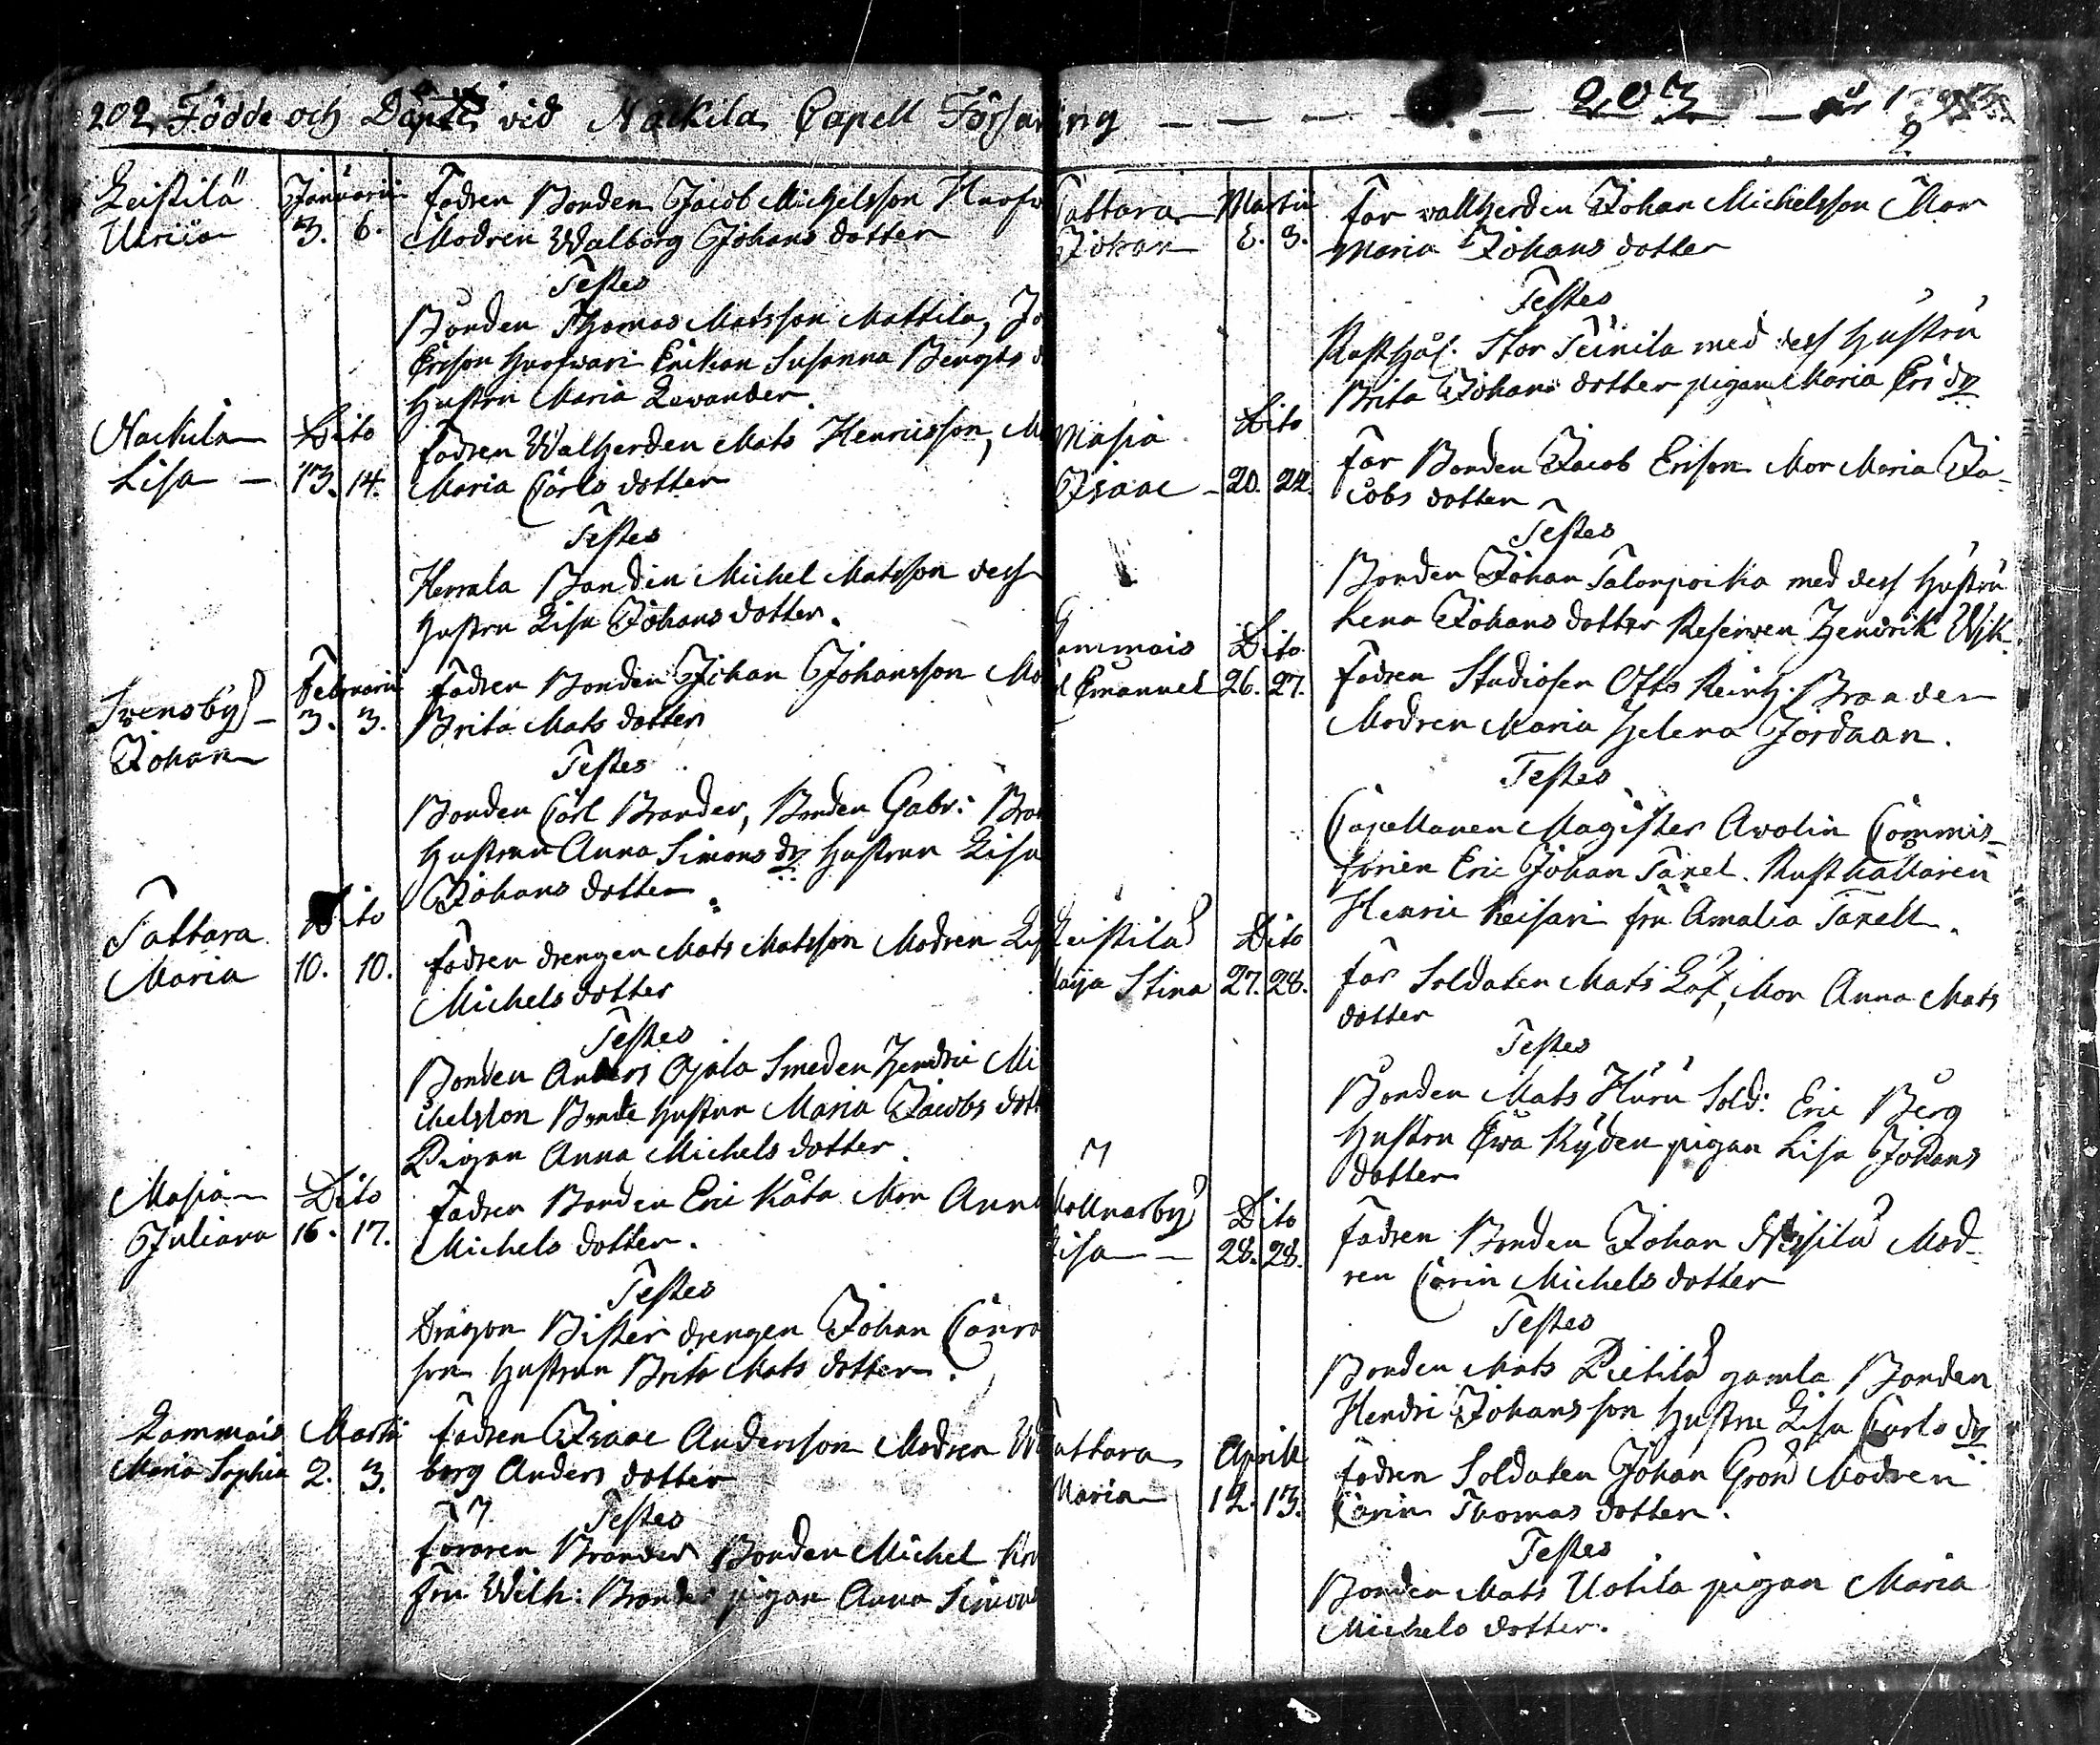 202. Födde och Döpte vid Nackila Capell Församling
Leistilä Januarii Fadren Bonden Jacob Michelsson
Ulrica 3. 6. Modren Walborg Johans dotter
Testes
Bonden Thomas Matsson Mattila,
Ericson Enkan Susanna Bengts
Hustru Maria Levander.
Nackila Dito Fadren Walherden Mats Henricsson,
Lisa 13. 14. Maria Carls dotter
Testes
Herrala Bonden Michel Matsson dess
Hustru Lisa Johans dotter.
Svensby Februarii Fadren Bonden Johan Johansson
Johan 3. 3. Brita Mats dotter
Testes
Bonden Carl Brander, Bonden Gabr:
Hustrun Anna Simons dr Hustrun Lisa
Johans dotter.
Tattara Dito Fadren drengen Mats Matsson Modren
Maria 10. 10. Michels dotter
Testes
Bonden Anders Ojala Smeden Hendric Mi
chelsson Bonde Hustrun Maria Jacobs dott
Pigan Anna Michels dotter.
Masia Dito Fadren Bonden Eric Kåta Mor Anna
Juliana 16. 17. Michels dotter.
Testes
Dragon Bister drengen Johan
son Hustrun Brita Mats dotter.
Lammais Martii Fadren Isaac Andersson Modren
Maria Sophia 2. 3. borg Anders dotter
Testes
Föraren Brander Bonden Michel
Fru Wilh: Brander pigan Anna Simons
203 år
Tattara Martii Far vallherden Johan Michelsson Mor
Johan 2. 3. Maria Johans dotter
Testes
Rusthål. Stor Teinila med dess Hustru
Brita Johans dotter pigan Maria Eri dr
Masia Dito Far Bonden Jacob Ericson Mor Maria Ja-
Isaac 20. 22. cobs dotter
Testes
Bonden Johan Talonpoika med dess Hustru
Lena Johans dotter Reserven Hendrik Wik.
Lammais Dito Fadren Studiosen Otto Reinh. Brander
Emanuel 26. 27. Modren Maria Helena Jordaan.
Testes
Capellanen Magister Avolin Commis-
sarien Eric Johan Taxel. Rusthållaren
Henric Keisari fru Amalia Taxell.
Leistilä Dito Far Soldaten Mats Mor Anna Mats
Maja Stina 27. 28. dotter
Testes
Bonden Mats Huru Sold: Eric Berg
Hustru Ewa Ryden pigan Lisa Johans
dotter
Dito Fadren Bonden Johan Mod-
Lisa 28. 28. ren Carin Michels dotter
Testes
Bonden Mats Pietilä gamla Bonden
Hendri Johansson Hustru Lisa Carls dr
Tattara Aprill Fadren Soldaten Johan Grön Modren
Maria 12. 13. Carin Thomas dotter.
Testes
Bonden Mats Uotila pigan Maria
Michels dotter.